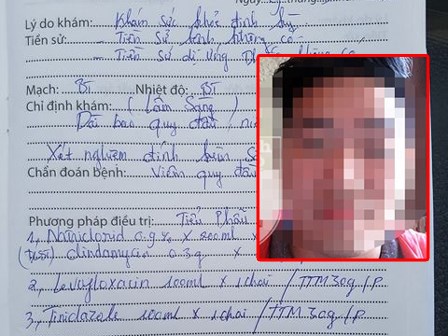 Ngày......tháng
Lý do khám: Khám sức khỏe định kỳ
Tiền sử: - Tiền sử bệnh không có
- Tiền sử dị ứng
Mạch: BT Nhiệt độ: BT
Chỉ định khám: ( Lâm Sàng )
Dài bao quy đầu,
Xét nghiệm định
Chẩn đoán bệnh: Viêm quy đầu
Phương pháp điều trị: Tiểu Phẫu
1, 0.9% x 200ml
Clindamycin 0.3g x
2, Levofloxacin 100ml x 1 chai / TTM 30g/p.
3, Tinidazole 100ml x 1 chai / TTM 30g/p